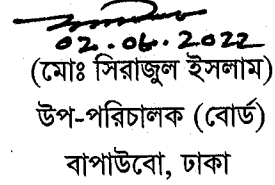 02.06.2022
(মোঃ সিরাজুল ইসলাম)
উপ-পরিচালক (বোর্ড)
বাপাউবো, ঢাকা